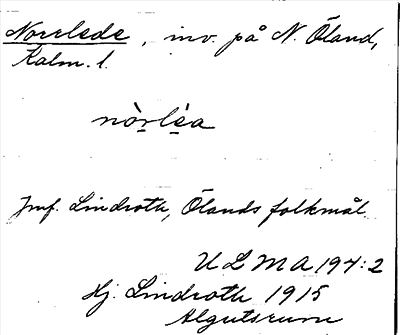 Norrlede, inv. på N. Öland,
Kalm. l.
nòrléa
Jmf. Lindroth, Ölands folkmål
ULMA 194:2
Hj. Lindroth 1915
Algutsrum